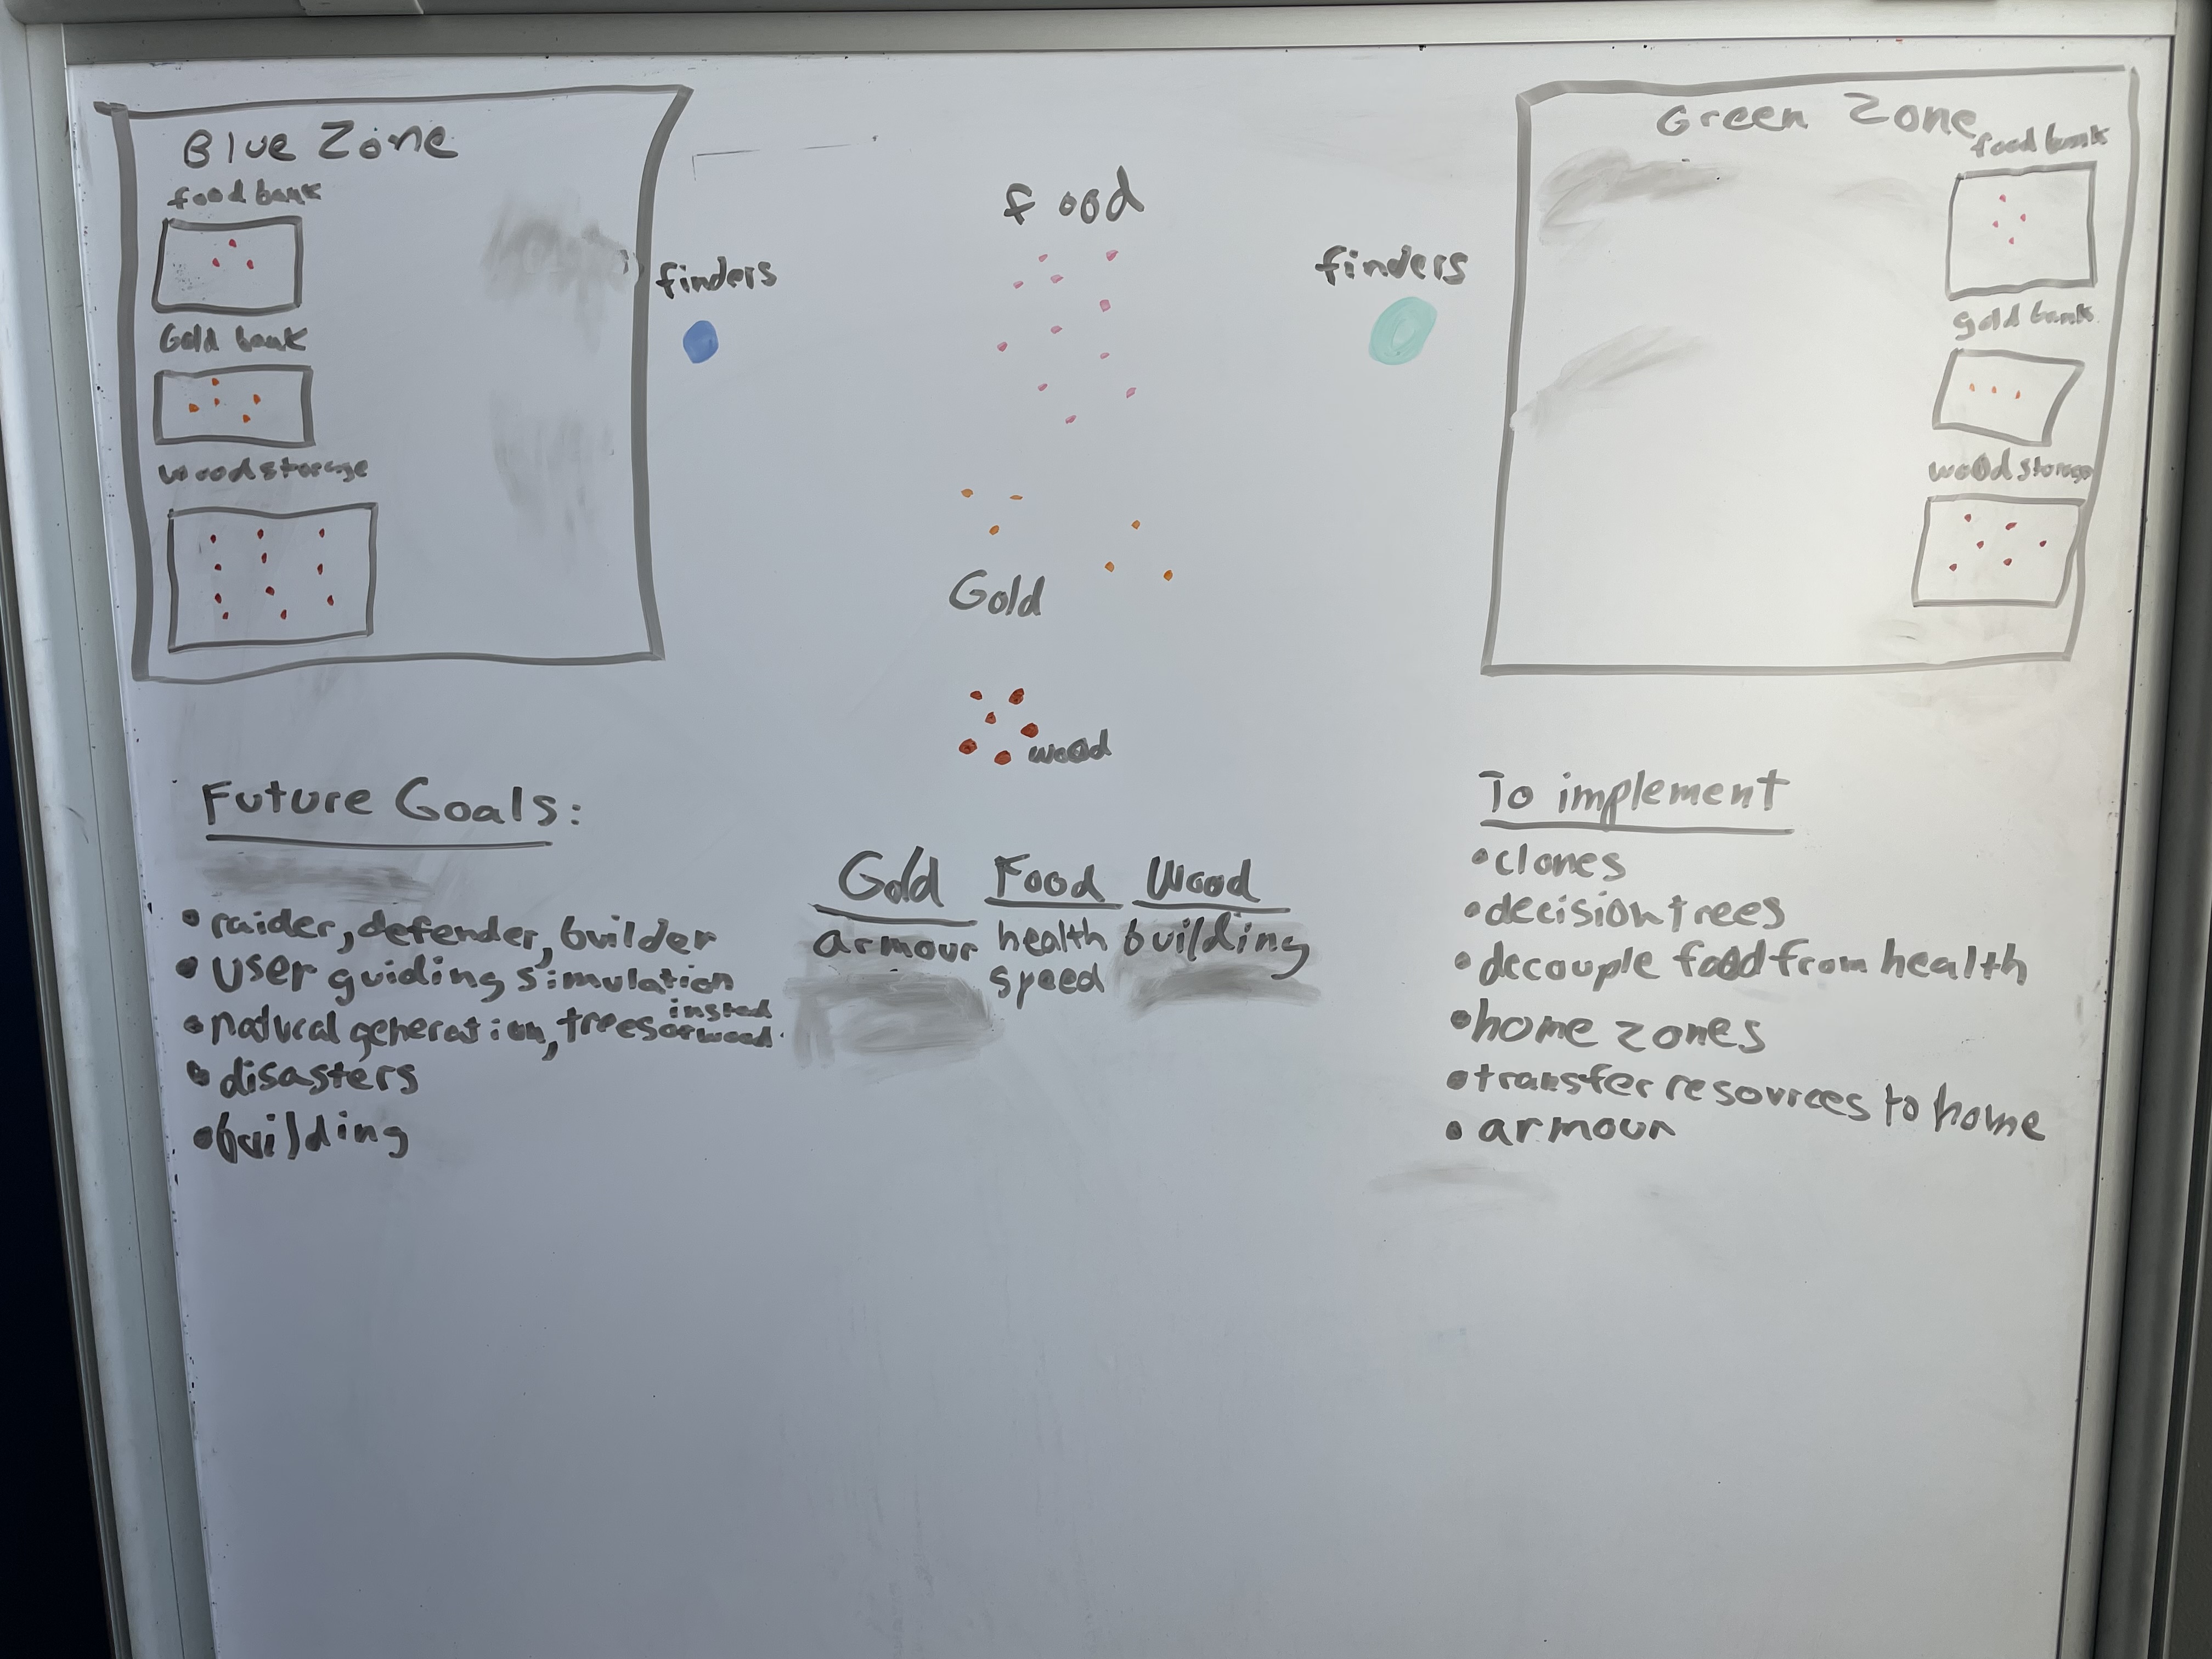 Blue Zone
food bank
Gold bank
wood storage
finders
food
Gold
wood
finders
Green Zone
food bank
gold bank
wood storage
Future Goals:
• raider, defender, builder
• user guiding simulation
• natural generation, trees insted or wood.
• disasters
• building
Gold Food Wood
armour health building
speed
To implement
• clones
• decision trees
• decouple food from health
• home zones
• transfer resources to home
• armour